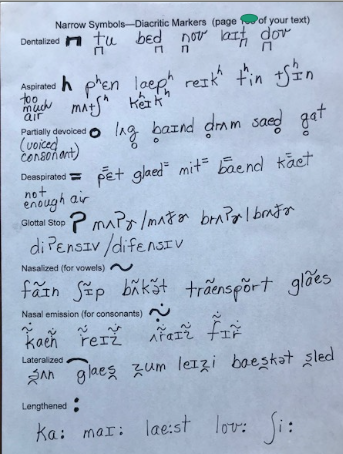 Narrow Symbols—Diacritic Markers (page of your text)
Dentalized ̪ t̪u bed̪ n̪ov l̪aɪt̪ d̪ov
Aspirated ʰ pʰɛn laepʰ reɪkʰ tʰin tʃʰɪn
too much air mʌtʃʰ keɪkʰ
Partially devoiced ̥
(voiced consonant) lʌg̥ b̥aɪnd d̥rʌm saed̥ g̥at
Deaspirated ⁼ p⁼ɛt glaed⁼ mit⁼ b⁼aend k⁼aet
not enough air
Glottal Stop ʔ mʌʔɚ / mʌfɚ brʌʔɚ / brʌfɚ
diʔɛnsɪv / difɛnsɪv
Nasalized (for vowels) ~
fãɪn ʃɪ̃p bʌ̃kət trãenspõrt glães
Nasal emission (for consonants) ⍨
kaen͋ reɪz͋ f͋ɪr͋
Lateralized
s͢ʌn glaes͢ z͢um leɪz͢i baes͢kət s͢led
Lengthened :
ka: maɪ: lae:st lov: ʃi: